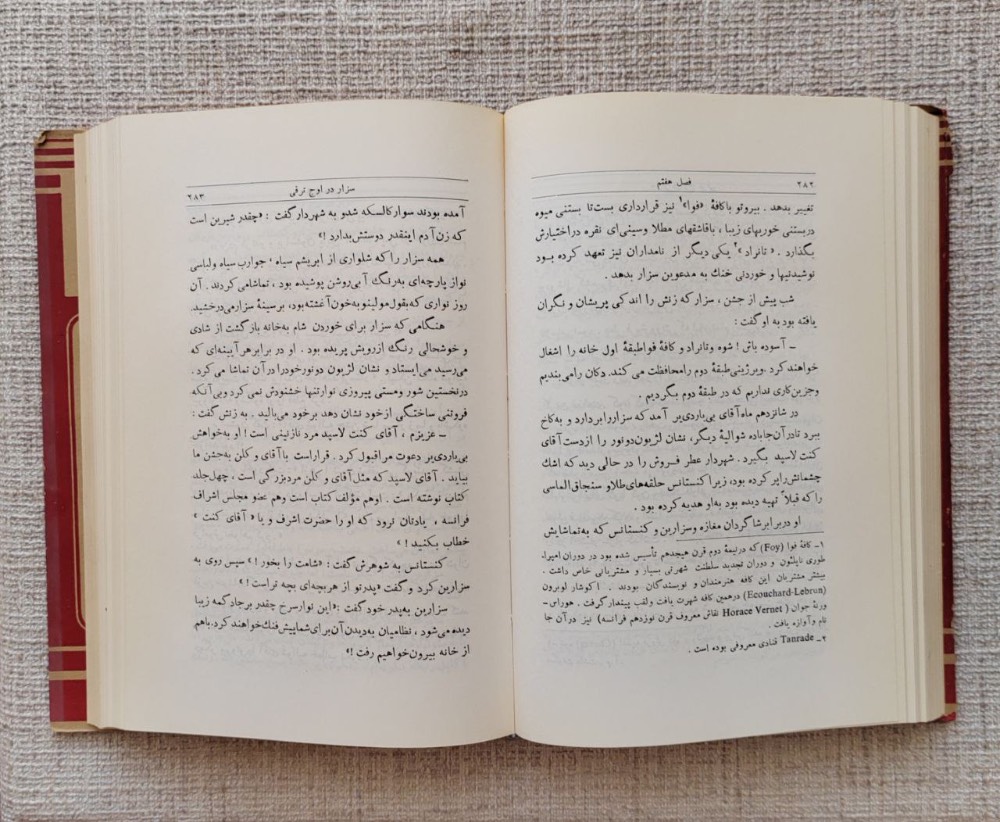 ۲۸۲ فصل هفتم
تغییر بدهد . بیروتو باکافهٔ «فوا»۱ نیز قراردادی بست تا بستنی میوه
در بستنی خوریهای زیبا ، باقاشقهای مطلا وسینی‌ای نقره دراختیارش
بگذارد . « تانراد »۲ یکی دیگر از نامداران نیز تعهد کرده بود
نوشیدنیها و خوردنی خنك به مدعوین سزار بدهد .
شب پیش از جشن ، سزار که زنش را اندکی پریشان و نگران
یافته بود به او گفت :
ـ آسوده باش ! شوه وتانراد و کافهٔ فواطبقهٔ اول خانه را اشغال
خواهند کرد .ویرژینی‌طبقهٔ دوم رامحافظت می کند. دکان رامی‌بندیم
وجزین‌کاری نداریم که در طبقهٔ دوم بگردیم .
در شانزدهم ماه‌آقای بی‌یاردی‌یر آمد که سزار رابردارد و به‌کاخ
ببرد تادرآن‌جاباده شوالیهٔ دیگر، نشان لژیون‌دونور را ازدست‌آقای
کنت لاسپد بگیرد . شهردار عطر فروش را در حالی دید که اشك
چشمانش‌راپر کرده بود، زیراکنستانس حلقه‌های‌طلاو سنجاق‌الماسی
را که قبلاً تهیه دیده بود به‌او هدیه کرده بود .
او دربرابرشاگردان مغازه وسزارین و کنستانس که به‌تماشایش
۱ـ کافهٔ فوا (Foy) که درنیمهٔ دوم قرن هیجدهم تأسیس شده بود در دوران امپرا-
طوری ناپلئون و دوران تجدید سلطنت شهرتی بسیار و مشتریانی خاص داشت .
بیشتر مشتریان این کافه هنرمندان و نویسندگان بودند . اکوشار لوبرون
(Ecouchard-Lebrun) درهمین کافه شهرت یافت ولقب پیندارگرفت . هورای-
ورنهٔ جوان ( Horace Vernet نقاش معروف قرن نوزدهم فرانسه) نیز درآن جا
نام وآوازه یافت .
۲ـ Tanrade قنادی معروفی بوده است .
سزار در اوج ترقی ۲۸۳
آمده بودند سوارکالسکه شدو به شهردار گفت : «چقدر شیرین است
که زن‌آدم اینقدر دوستش‌بدارد !»
همه سزار را که شلواری از ابریشم سیاه ، جوارب سیاه ولباسی
نواز پارچه‌ای به‌رنگ آبی‌روشن پوشیده بود ، تماشامی کردند . آن
روز نواری که‌بقول‌مولینو به‌خون‌آغشته‌بود، برسینهٔ سزارمی‌درخشید.
هنگامی که سزار برای خوردن شام به‌خانه بازگشت از شادی
و خوشحالی رنگ ازرویش پریده بود . او در برابرهر آیینه‌ای که
می‌رسید می‌ایستاد و نشان لژیون دونورخودرادرآن تماشا می‌کرد .
درنخستین شور ومستی پیروزی نوارتنها خشنودش نمی کردوبی‌آنکه
فروتنی ساختگی ازخود نشان دهد برخود می‌بالید . به زنش گفت :
ـ عزیزم ، آقای کنت لاسپد مرد نازنینی است ! او به‌خواهش
بی‌یاردی‌یر دعوت مراقبول کرد . قراراست باآقای و کلن به‌جشن ما
بیاید . آقای لاسپد که مثل‌آقای و کلن مردبزرگی است ، چهل‌جلد
کتاب نوشته است . اوهم مؤلف کتاب است وهم عضو مجلس اشراف
فرانسه ، یادتان نرود که او را حضرت اشرف و یا « آقای کنت »
خطاب بکنید ! »
کنستانس به شوهرش گفت : «شامت را بخور ! » سپس روی به
سزارین کرد و گفت «پدرتو از هربچه‌ای بچه تراست !»
سزارین به‌پدر خودگفت : «این نوارسرخ چقدر برجادکمه زیبا
دیده می‌شود ، نظامیان به‌دیدن آن‌برای‌شماپیش‌فنك‌خواهند کرد.باهم
از خانه بیرون‌خواهیم رفت !»